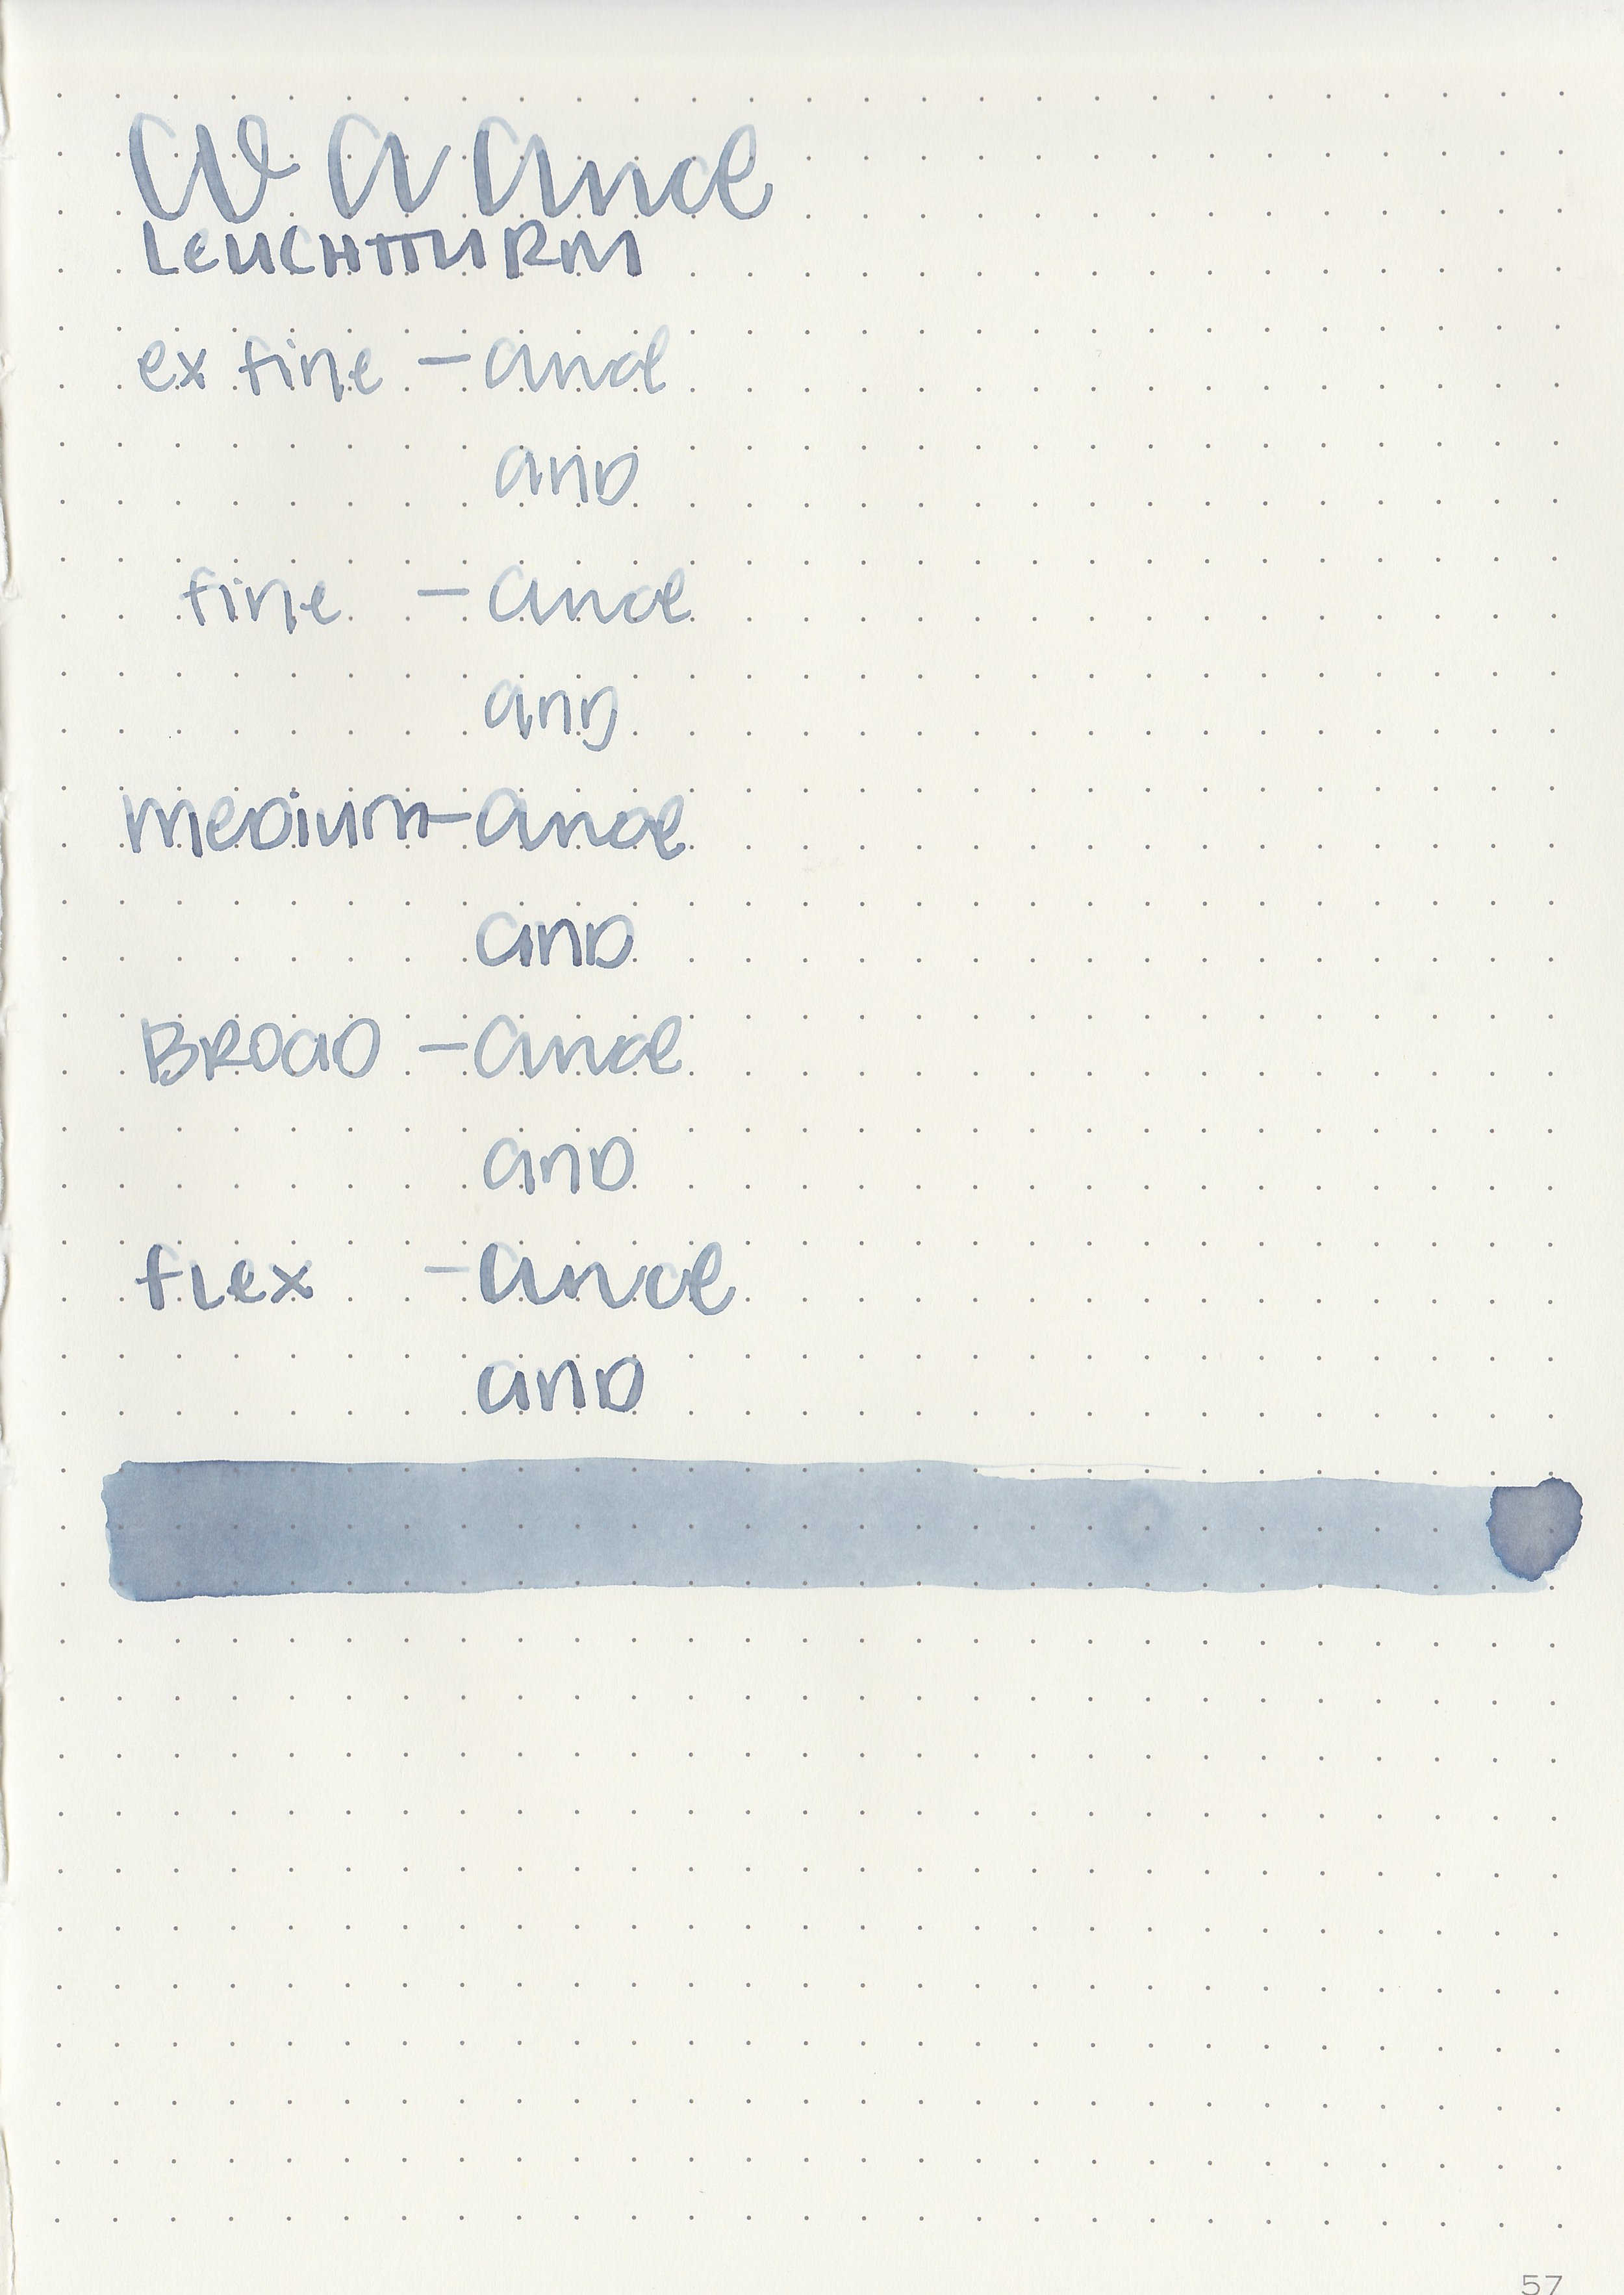 W A And
LEUCHTTURM
ex fine - and
and
fine - and
and
medium - and
and
BROAD - and
and
flex - and
and
57